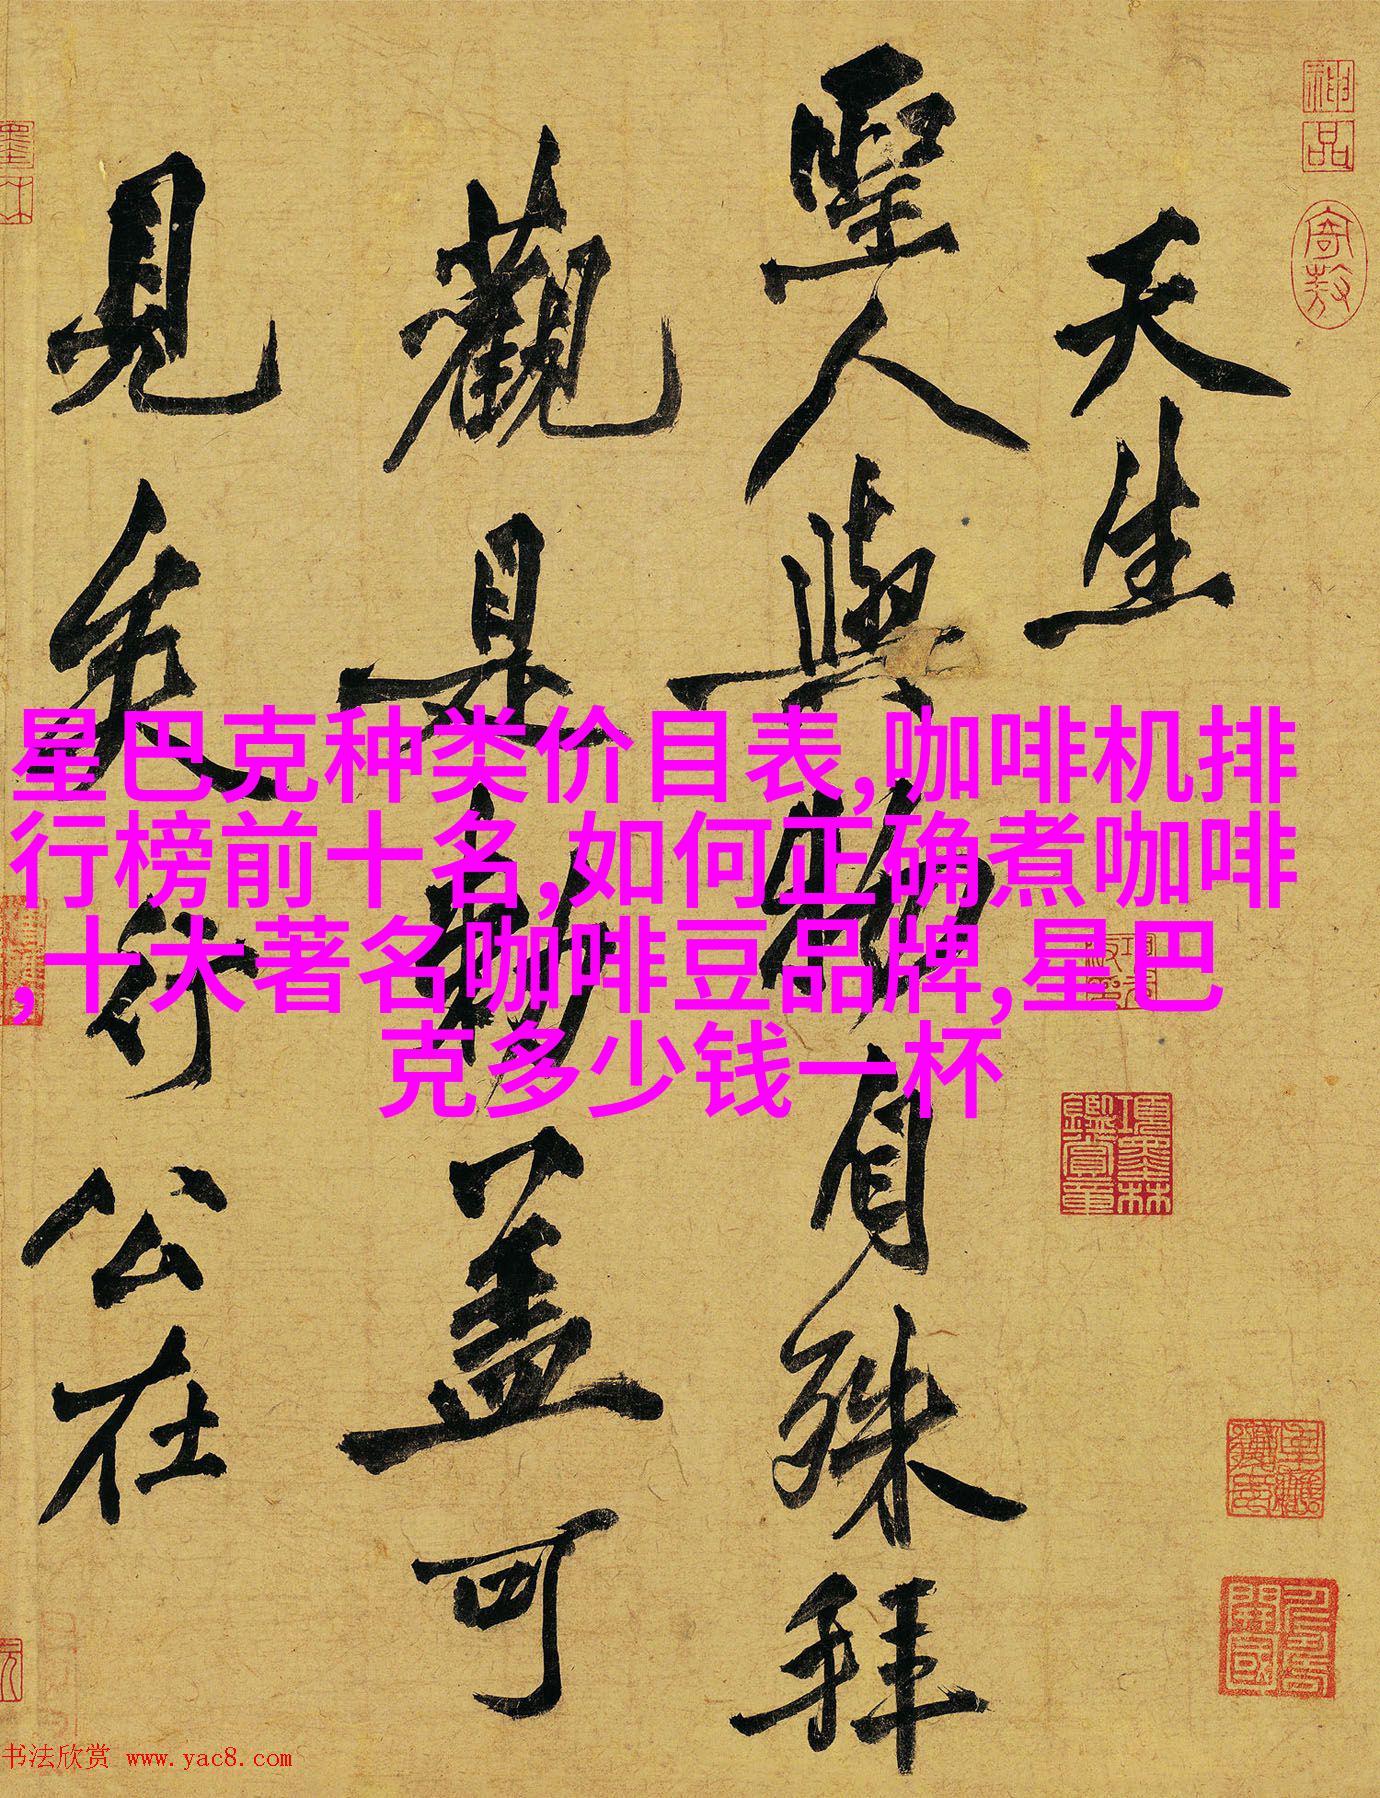 天生
聖人與
顏自殊拜
觀是
勅蓋可
見矣
行公在
星巴克种类价目表,咖啡机排
行榜前十名,如何正确煮咖啡
,十大著名咖啡豆品牌,星巴
克多少钱一杯
神品
項墨林
鑑賞章
书法欣赏 www.yac8.com